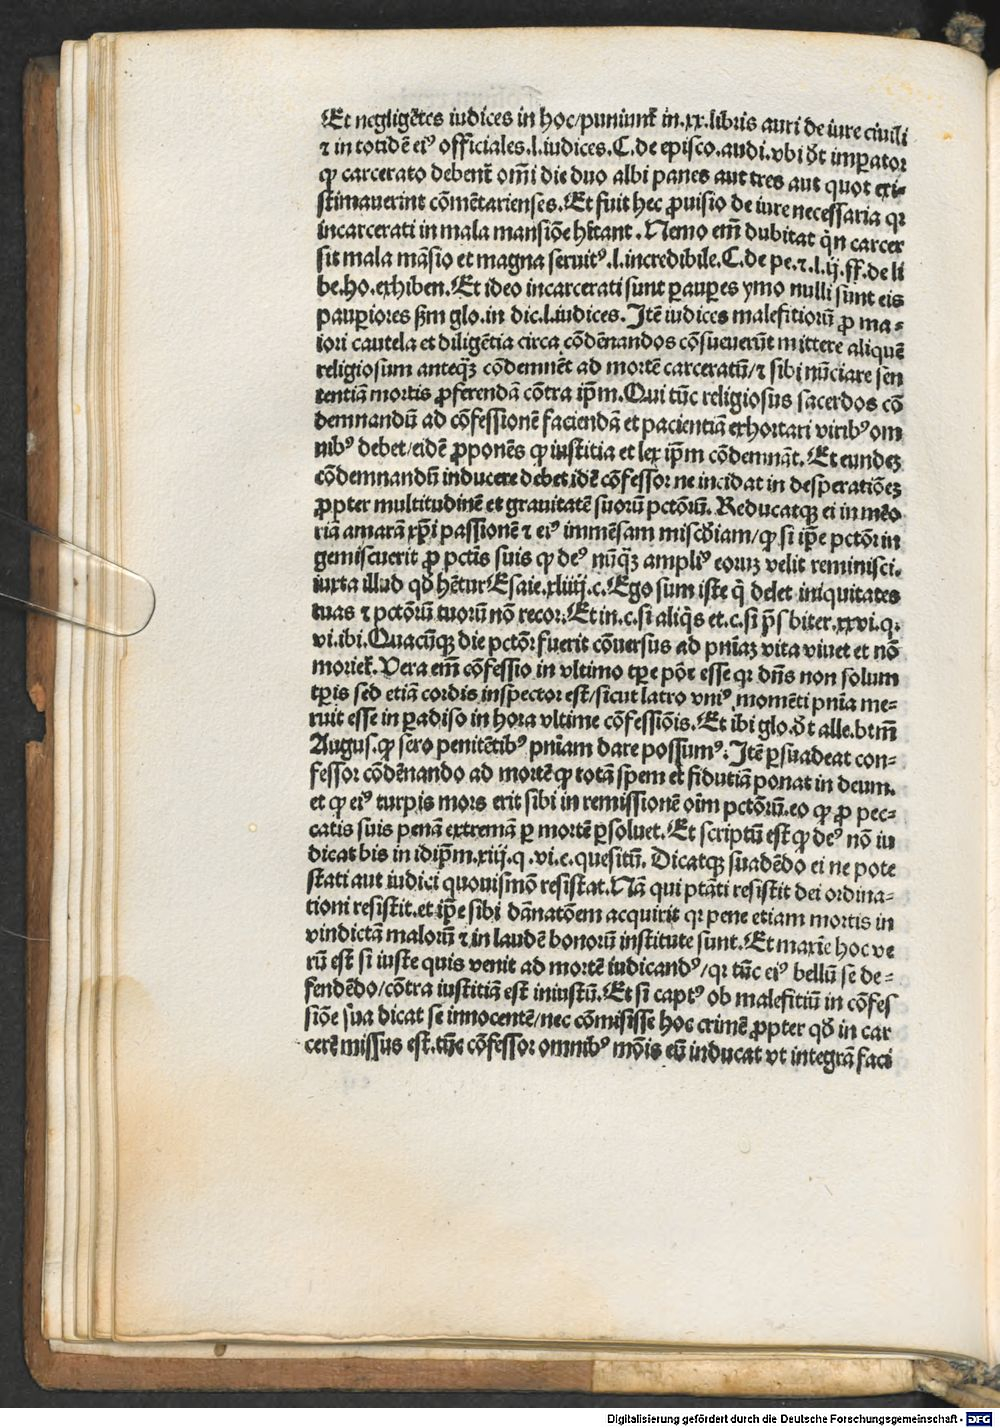 Et neglige̅tes iudices in hoc/puniunt᷑ in.xx.libris auri de iure ciuili
⁊ in totide̅ eiꝰ officiales.l.iudices.C.de episco.audi.vbi d̅t imꝑator
ꝙ carcerato debent᷑ om̅i die duo albi panes aut tres aut quot exi⸗
stimauerint co̅me̅tarienses.Et fuit hec ꝓuisio de iure necessaria qꝛ
incarcerati in mala mansio̅e h̅itant.Nemo em̅ dubitat q̅n carcer
sit mala ma̅sio et magna seruitꝰ.l.incredibile.C.de pe.⁊.l.ij.ff.de li
be.ho.exhiben.Et ideo incarcerati sunt pauꝑes ymo nulli sunt eis
pauꝑiores ẜm glo.in dic.l.iudices.Ite̅ iudices malefitioru̅ ꝓ ma⸗
iori cautela et dilige̅tia circa co̅de̅nandos co̅sueueru̅t mittere alique̅
religiosum anteqꝫ̅ co̅demne̅t ad morte̅ carceratu̅/⁊ sibi nu̅ciare sen
tentia̅ mortis ꝓferenda̅ co̅tra ip̅m.Qui tu̅c religiosus sacerdos co̅
demnandu̅ ad co̅fessione̅ facienda̅ et pacientia̅ exhortari viribꝰ om
nibꝰ debet/eide̅ ꝓpone̅s ꝙ iustitia et lex ip̅m co̅demna̅t.Et eundeꝫ
co̅demnandu̅ inducere debet ide̅ co̅fessor ne incidat in desperatio̅eꝫ
ꝓpter multitudine̅ et grauitate̅ suoru̅ pcto̅ꝛu̅.Reducatqꝫ ei in me̅o
ria̅ amara̅ xp̅i passione̅ ⁊ eiꝰ imme̅sam misc̅diam/ꝙ si ip̅e pcto̅ꝛ in
gemiscuerit ꝓ pctı̅s suis ꝙ deꝰ nu̅qꝫ̅ ampliꝰ eoruꝫ velit reminisci.
iuxta illud qd̅ he̅tur Esaie.xliiij.c.Ego sum iste q̅ delet iniquitates
tuas ⁊ pcto̅ꝛu̅ tuoru̅ no̅ recor.Et in.c.si aliq̅s et.c.si p̅sbiter.xxvi.q.
vi.ibi.Quacu̅qꝫ die pcto̅ꝛ fuerit co̅uersus ad pn̅iaꝫ vita viuet et no̅
moriet᷑.Vera em̅ co̅fessio in vltimo tp̅e po̅t esse qꝛ dn̅s non solum
tꝑis sed etia̅ cordis inspector est/sicut latro vniꝰ mome̅ti pn̅ia me⸗
ruit esse in ꝑadiso in hora vltime co̅fessio̅is.Et ibi glo.d̅t alle.btm̅
Augus.ꝙ sero penite̅tibꝰ pn̅iam dare possumꝰ.Ite̅ ꝑsuadeat con⸗
fessor co̅de̅nando ad morte̅ ꝙ tota̅ spem et fidutia̅ ponat in deum.
et ꝙ eiꝰ turpis mors erit sibi in remissione̅ oı̅m pcto̅ꝛu̅.eo ꝙ ꝓ pec⸗
catis suis pena̅ extrema̅ ꝑ morte̅ ꝑsoluet.Et scriptu̅ est ꝙ deꝰ no̅ iu
dicat bis in idip̅m.xiij.q.vi.c.quesitu̅.Dicatqꝫ suade̅do ei ne pote
stati aut iudici quouismo̅ resistat.Na̅ qui pta̅ti resistit dei ordina⸗
tioni resistit.et ip̅e sibi da̅nato̅em acquirit qꝛ pene etiam mortis in
vindicta̅ maloru̅ ⁊ in laude̅ bonoru̅ institute sunt.Et maxı̅e hoc ve
ru̅ est si iuste quis venit ad morte̅ iudicandꝰ/qꝛ tu̅c eiꝰ bellu̅ se de⸗
fende̅do/co̅tra iustitia̅ est iniustu̅.Et si captꝰ ob malefitiu̅ in co̅fes
sio̅e sua dicat se innocente̅/nec co̅misisse hoc crime̅ ꝓpter qd̅ in car
cere̅ missus est.tu̅c co̅fessor omnibꝰ mo̅is eu̅ inducat vt integra̅ faci
Digitalisierung gefördert durch die Deutsche Forschungsgemeinschaft - DFG